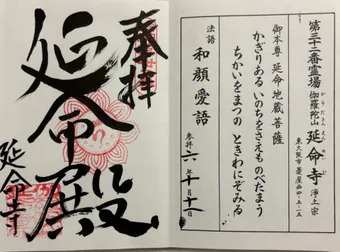 第三十二番霊場 伽羅陀山 延命寺 浄土宗
からださん えんめいじ
東大阪市菱屋西四-五-一五
御本尊 延命地蔵菩薩
かぎりある いのちをさえも のべたまう
ちかいをまつの ときわにぞみる
法語 和顔愛語
参拝 六年十月十八日
奉拝
延命殿
延命寺